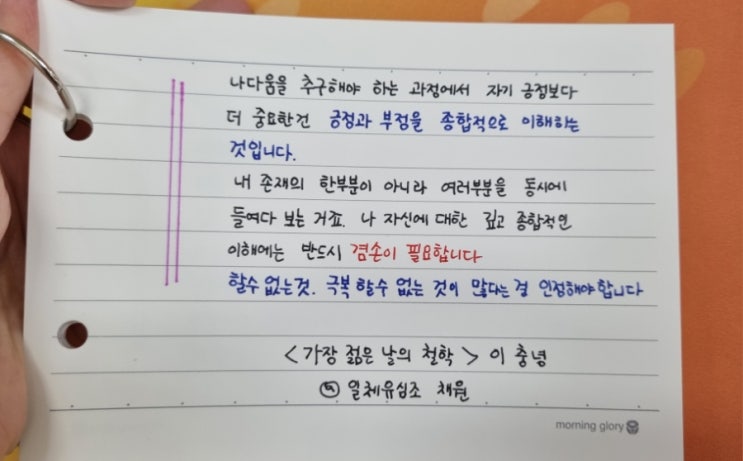 나다움을 추구해야 하는 과정에서 자기 긍정보다
더 중요한건 긍정과 부정을 종합적으로 이해하는
것입니다.
내 존재의 한부분이 아니라 여러부분을 동시에
들여다 보는 거죠. 나 자신에 대한 깊고 종합적인
이해에는 반드시 겸손이 필요합니다
할수 없는것. 극복 할수 없는 것이 많다는 걸 인정해야 합니다
<가장 젊은 날의 철학> 이 충녕
일체유심조 채원
morning glory